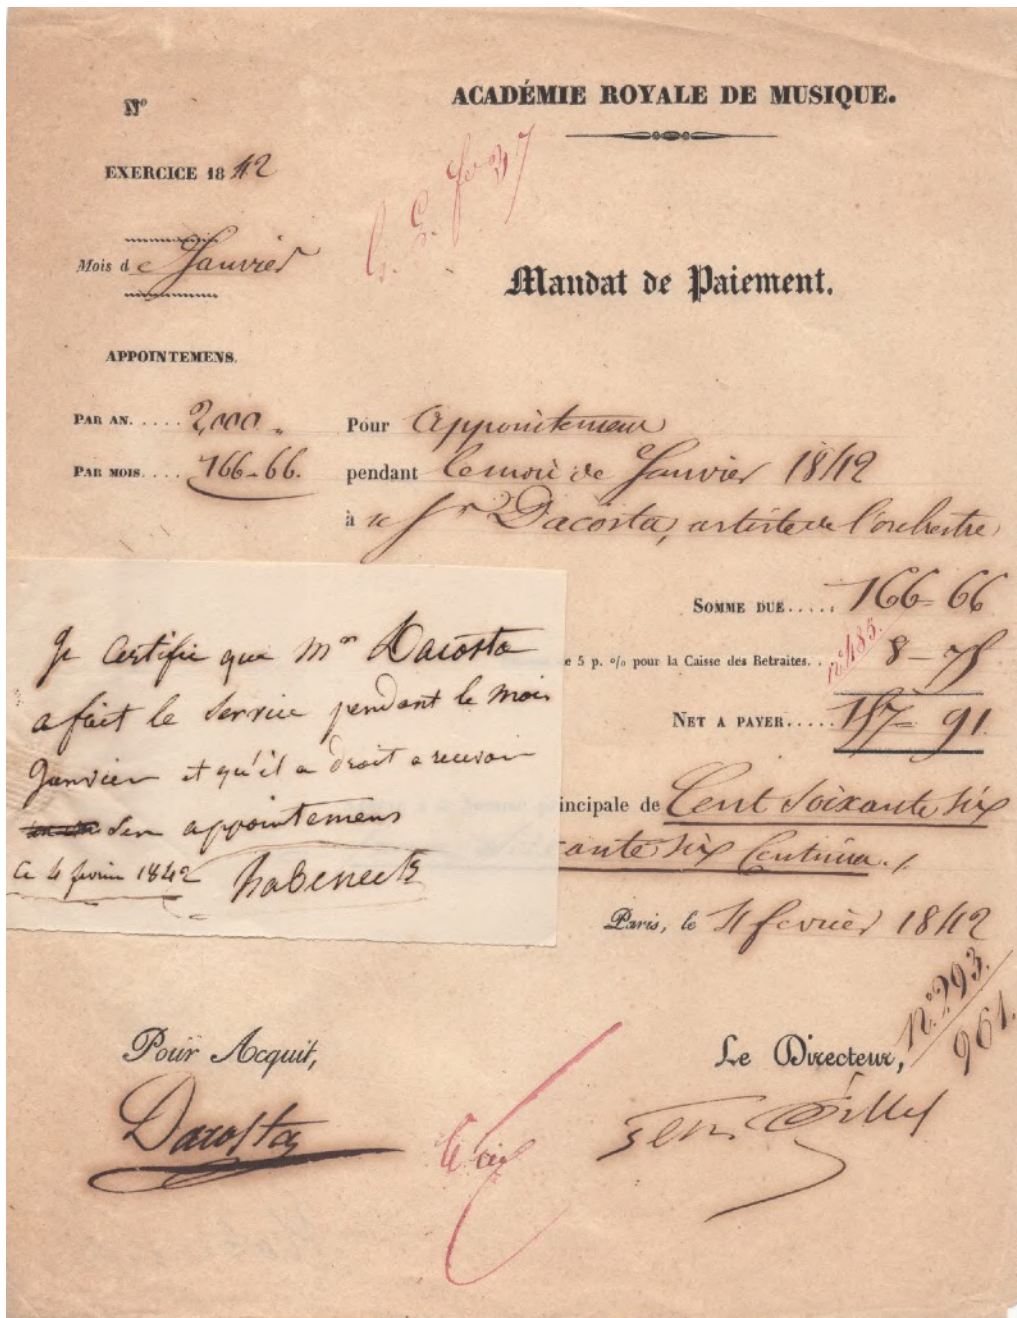 ACADÉMIE ROYALE DE MUSIQUE.
N°
EXERCICE 1842
Mois de Janvier
Mandat de Paiement.
APPOINTEMENS.
PAR AN..... 2,000 „
PAR MOIS.... 166-66.
Pour appointemens
pendant le mois de Janvier 1842
à Sr Dacosta, artiste de l'orchestre
SOMME DUE..... 166-66
n° 485.
e 5 p. % pour la Caisse des Retraites.. 8-75
NET A PAYER..... 157-91
incipale de Cent soixante six
ante six Centimes.
Paris, le 4 février 1842
Je certifie que Mr Dacosta
a fait le service pendant le mois
Janvier et qu'il a droit a recevoir
ses appointemens
Ce 4 fevrier 1842 habeneck
n° 293.
961.
Pour Acquit,
Le Directeur,
Dacosta